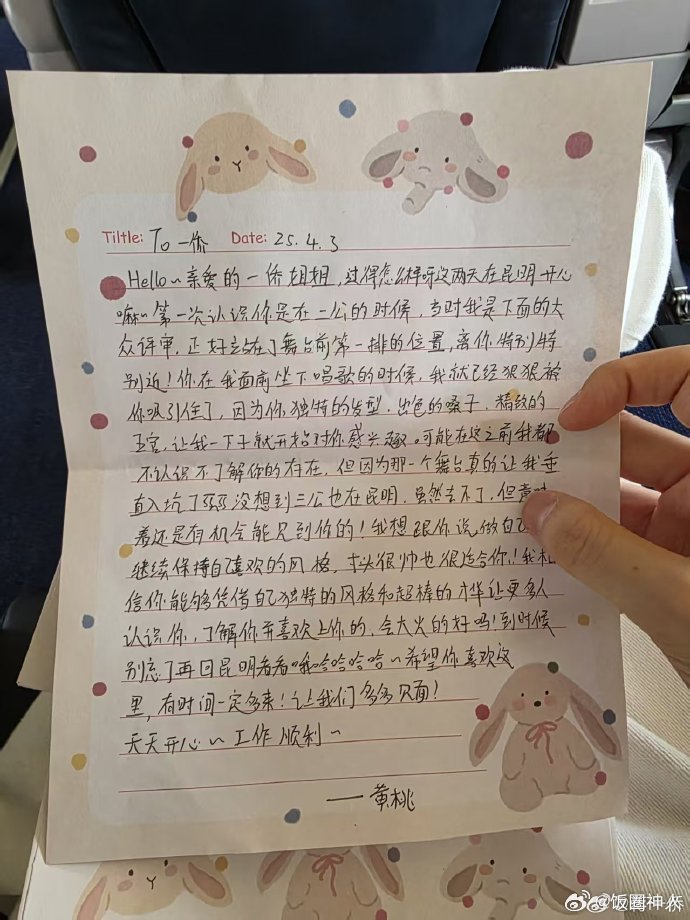 Tiltle: To 一侨 Date: 25.4.3
Hello~亲爱的一侨姐姐,过得怎么样呀这两天在昆明开心
嘛~第一次认识你是在一公的时候,当时我是下面的大
众评审,正好站在了舞台前第一排的位置,离你特别特
别近!你在我面前坐下唱歌的时候,我就已经狠狠被
你吸引住了,因为你独特的发型,出色的嗓子,精致的
五官,让我一下子就开始对你感兴趣。可能在这之前我都
不认识不了解你的存在,但因为那一个舞台真的让我垂
直入坑了 没想到三公也在昆明,虽然去不了,但意味
着还是有机会能见到你的!我想跟你说,做自己
继续保持自己喜欢的风格,寸头很帅也很适合你!我相
信你能够凭借自己独特的风格和超棒的才华让更多人
认识你,了解你并喜欢上你的,会大火的好吗!到时候
别忘了再回昆明看看哦哈哈哈哈~希望你喜欢这
里,有时间一定多来!让我们多多见面!
天天开心~工作顺利~
——黄桃
@饭圈神兵